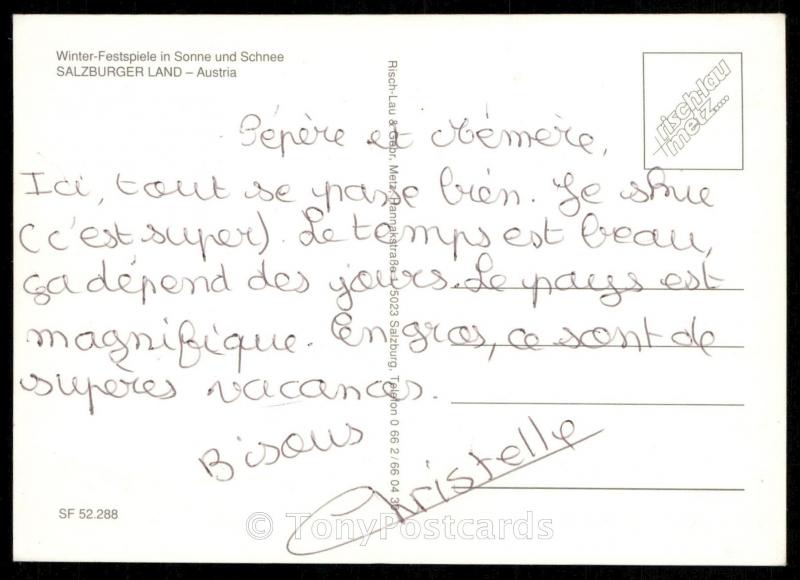 Winter-Festspiele in Sonne und Schnee
SALZBURGER LAND – Austria
Risch-Lau & Gebr. Metz, Hannakstraße 1, 5023 Salzburg, Telefon 0 66 2/66 04 30
risch-lau
metz....
Pépère et Mémère,
Ici, tout se passe bien. Je skie
(c'est super). Le temps est beau,
ça dépend des jours. Le pays est
magnifique. En gros, ce sont de
supères vacances.
Bisous
Christelle
SF 52.288
© TonyPostcards